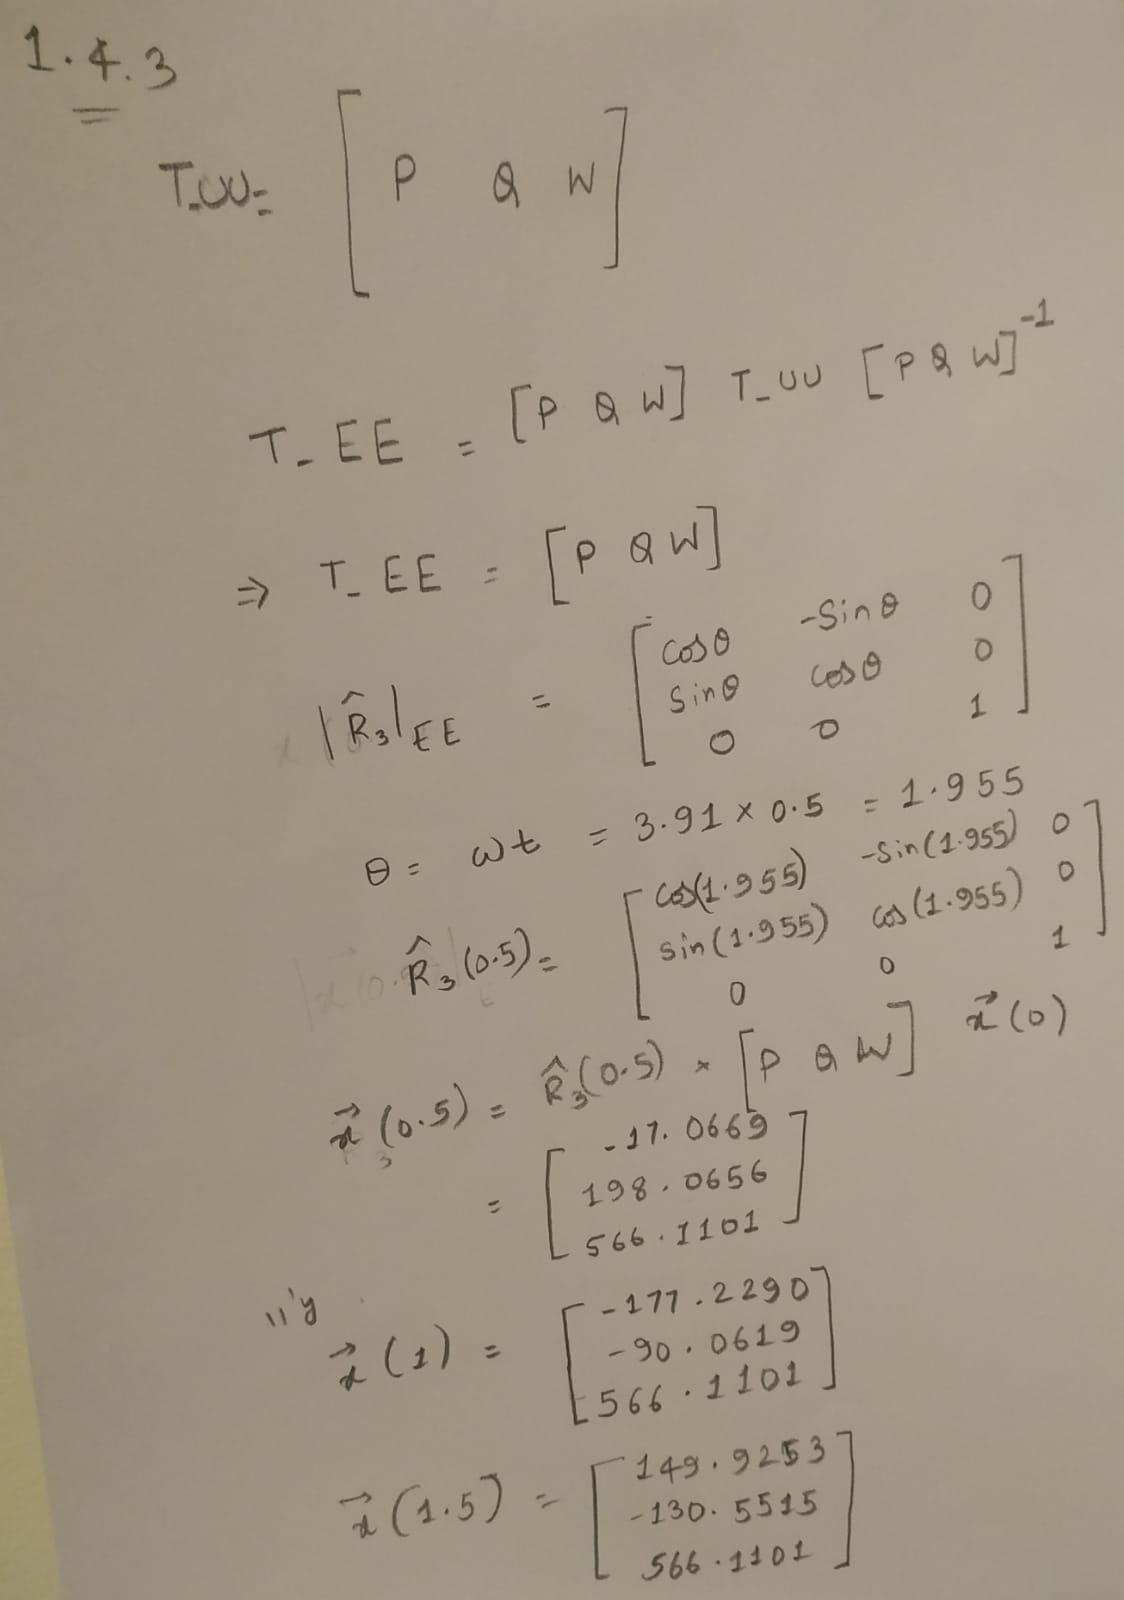 1.4.3
T_UU = [P Q W]
T_EE = [P Q W] T_UU [P Q W]^-1
⇒ T_EE = [P Q W]
|R̂₃|EE = [cosθ -Sinθ 0
Sinθ cosθ 0
0 0 1]
θ = ωt = 3.91 × 0.5 = 1.955
R̂₃(0.5) = [cos(1.955) -Sin(1.955) 0
sin(1.955) cos(1.955) 0
0 0 1]
x⃗(0.5) = R̂₃(0.5) × [P Q W] x⃗(0)
= [-17.0669
198.0656
566.1101]
11'y
x⃗(1) = [-177.2290
-90.0619
566.1101]
x⃗(1.5) = [149.9253
-130.5515
566.1101]